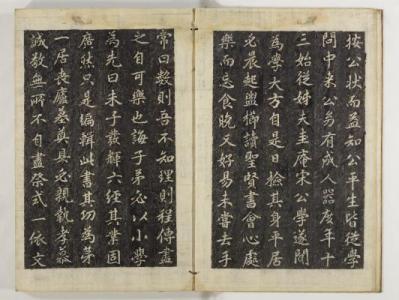 按公狀而益知公平生皆從學
問中來公弱有成人器度年十
三始從姊夫圭庵宋公學遂聞
為學大方自是日檢其身平居
必晨起盥櫛讀聖賢書會心處
樂而忘食晚又好易未嘗去手
常曰數則吾不知理則程傳盡
之自可樂也誨子弟必以小學
為先曰朱子發輝六經其業固
廣然只是編輯此書其功為第
一居喪廬墓眞具必親執孝慕
誠敬無所不自盡祭式一依文